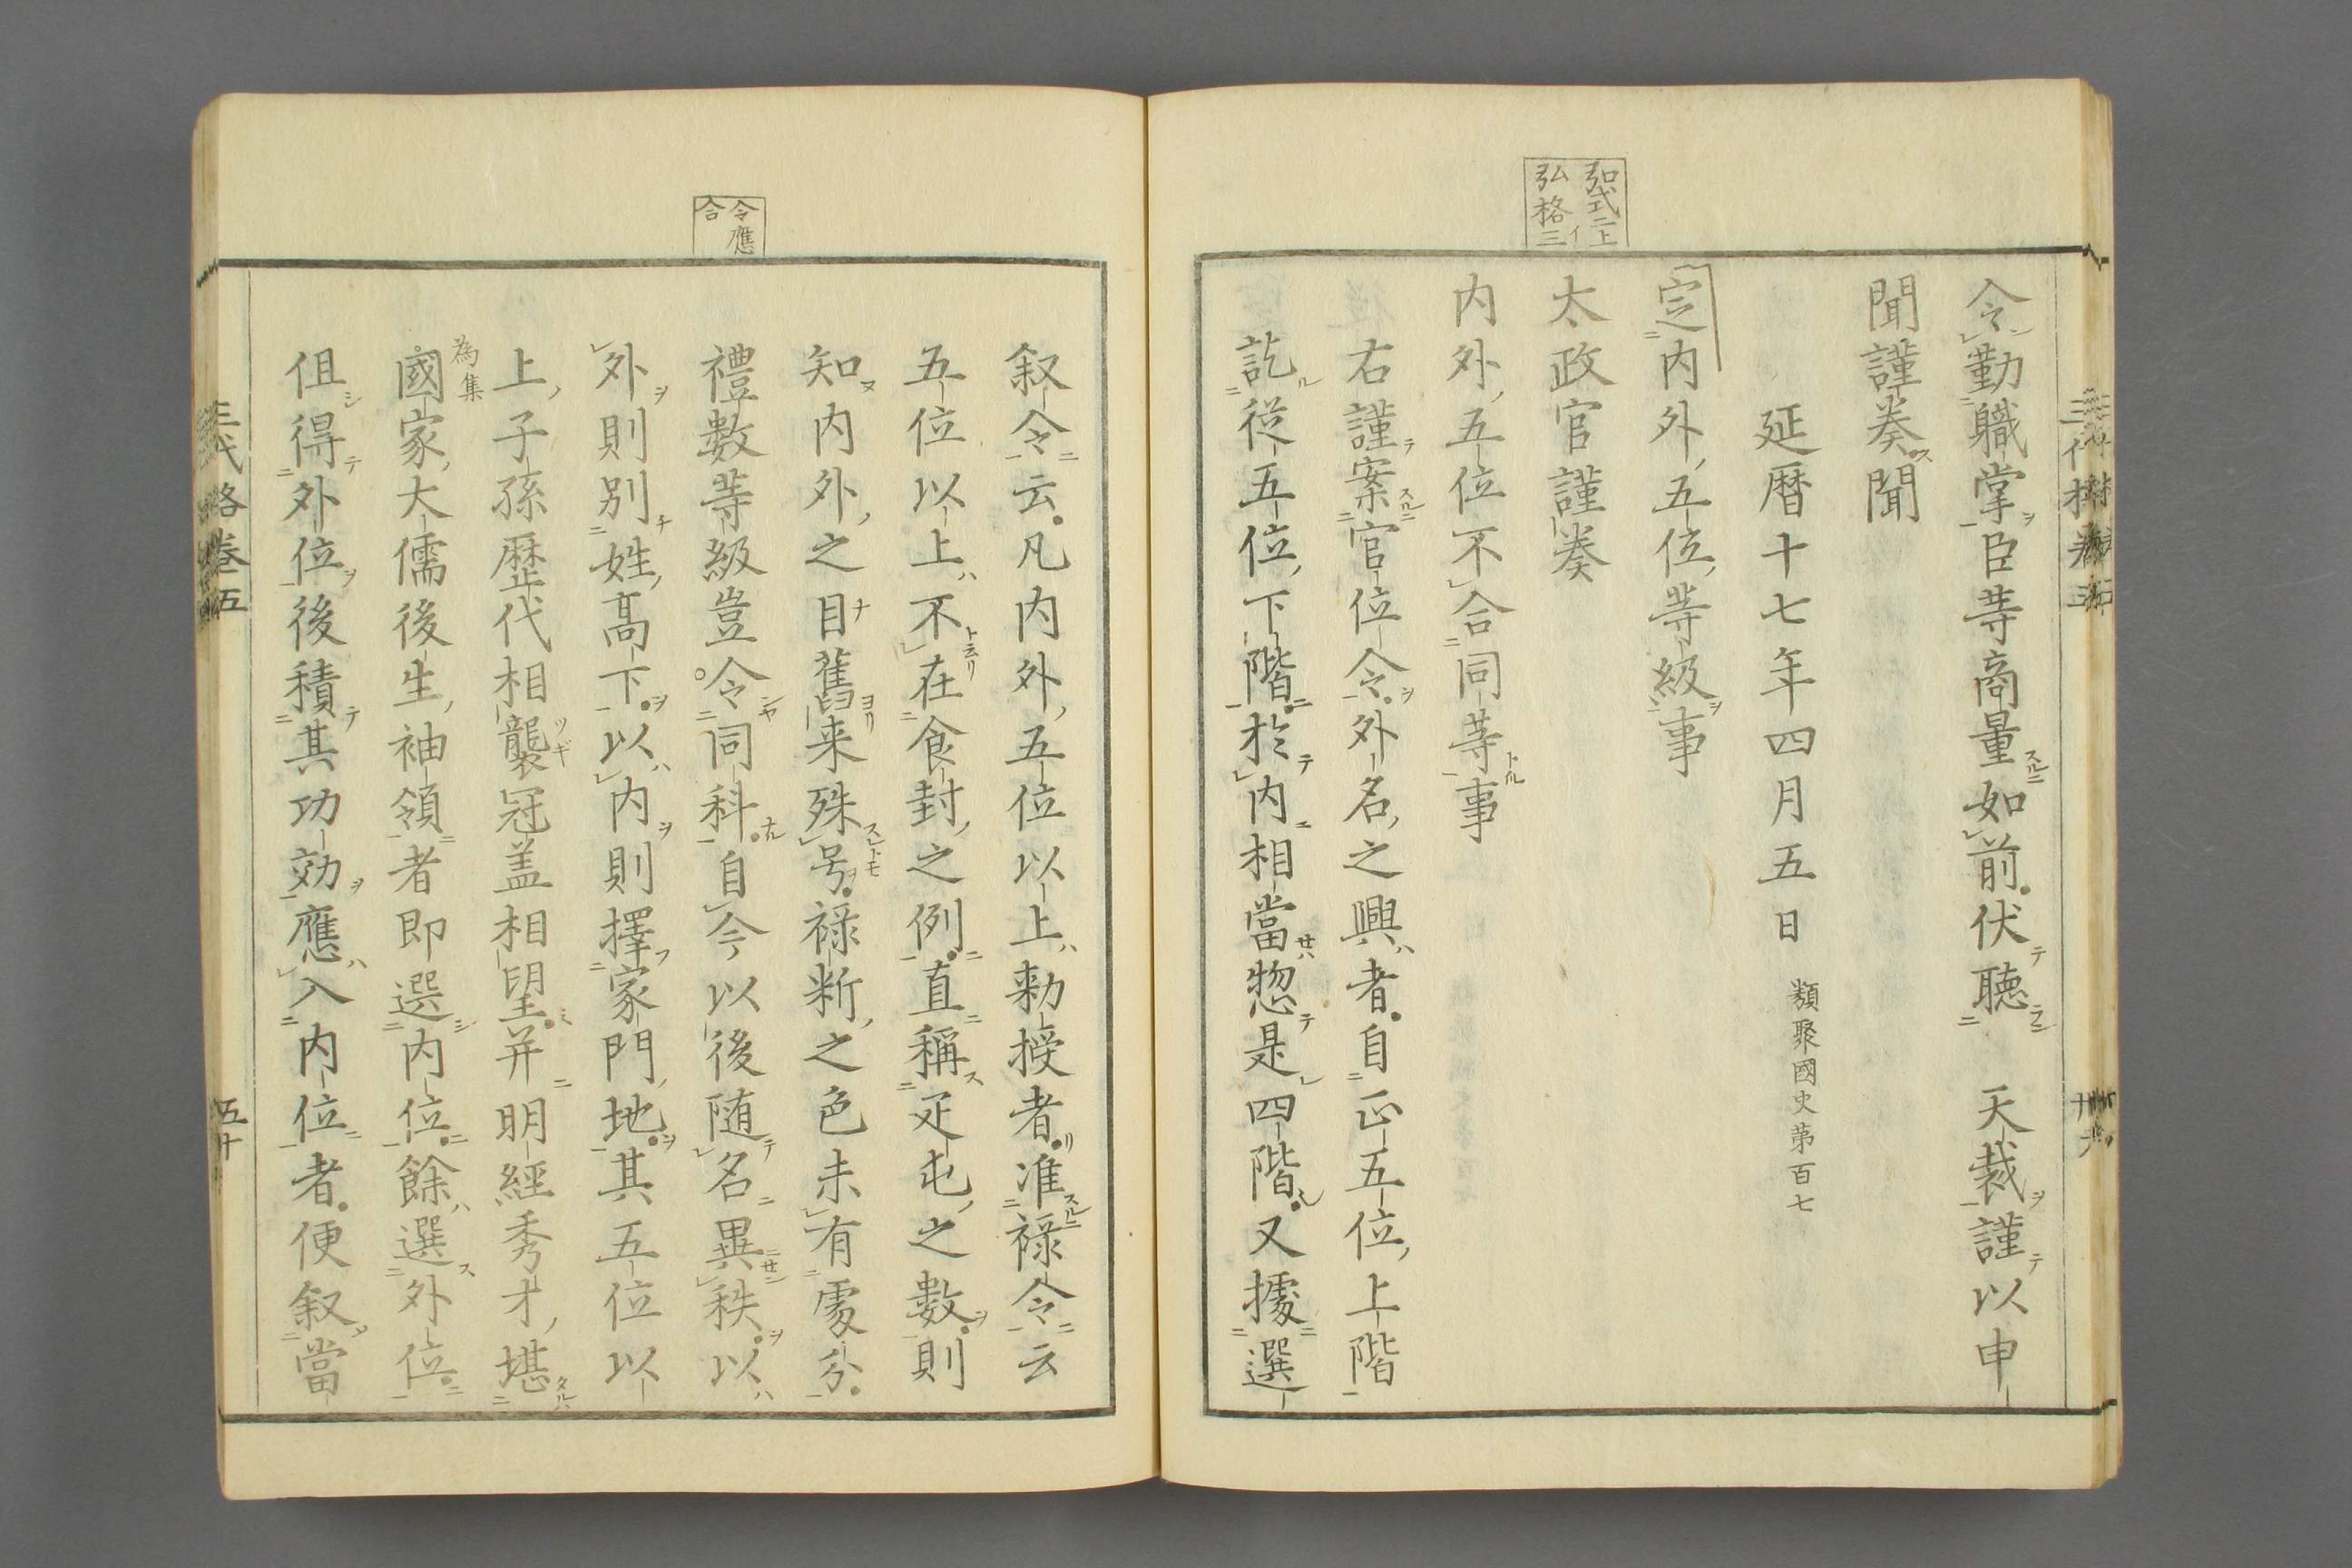 弘式二上イ
弘格三
令勤職掌臣等商量如前伏聴　天裁謹以申
聞謹奏聞
延暦十七年四月五日　類聚國史第百七
定内外五位等級事
太政官謹奏
内外五位不合同等事
右謹案官位令外名之興者自正五位上階
訖従五位下階於内相當惣是四階又據選
令應
合
叙令云凡内外五位以上勅授者准禄令云
五位以上不在食封之例直稱疋屯之數則
知内外之目舊来殊号禄断之色未有處分
禮數等級豈令同科自今以後随名異秩以
外則別姓高下以内則擇家門地其五位以
上子孫歴代相襲冠盖相望并明經秀才堪
為集
國家大儒後生袖領者即選内位餘選外位
但得外位後積其功効應入内位者便叙當
三代格巻五
五十